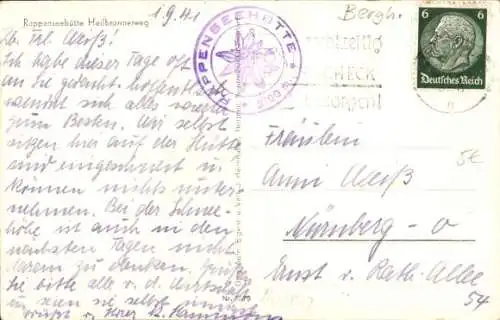 Rappenseehütte Heilbronnerweg
1.9.41
Bergh.
Lb. Frl. Weiß!
Ich habe dieser Tage oft
an Sie gedacht, hoffentlich
wendet sich alles wieder
zum Besten. Wir selbst
sitzen hier auf der Hütte
sind eingeschneit u.
können nichts unter-
nehmen. Bei der Schnee-
höhe ist auch in den
nächsten Tagen nicht
daran zu denken. Grüßen
Sie bitte alle v. d.
u. seien Sie selbst
RAPPENSEEHÜTTE
SCHECK
besorgen!
6 6
Deutsches Reich
Fräulein
Anni Weiß
Nürnberg - O
Ernst v. Rath-Allee
5€
54